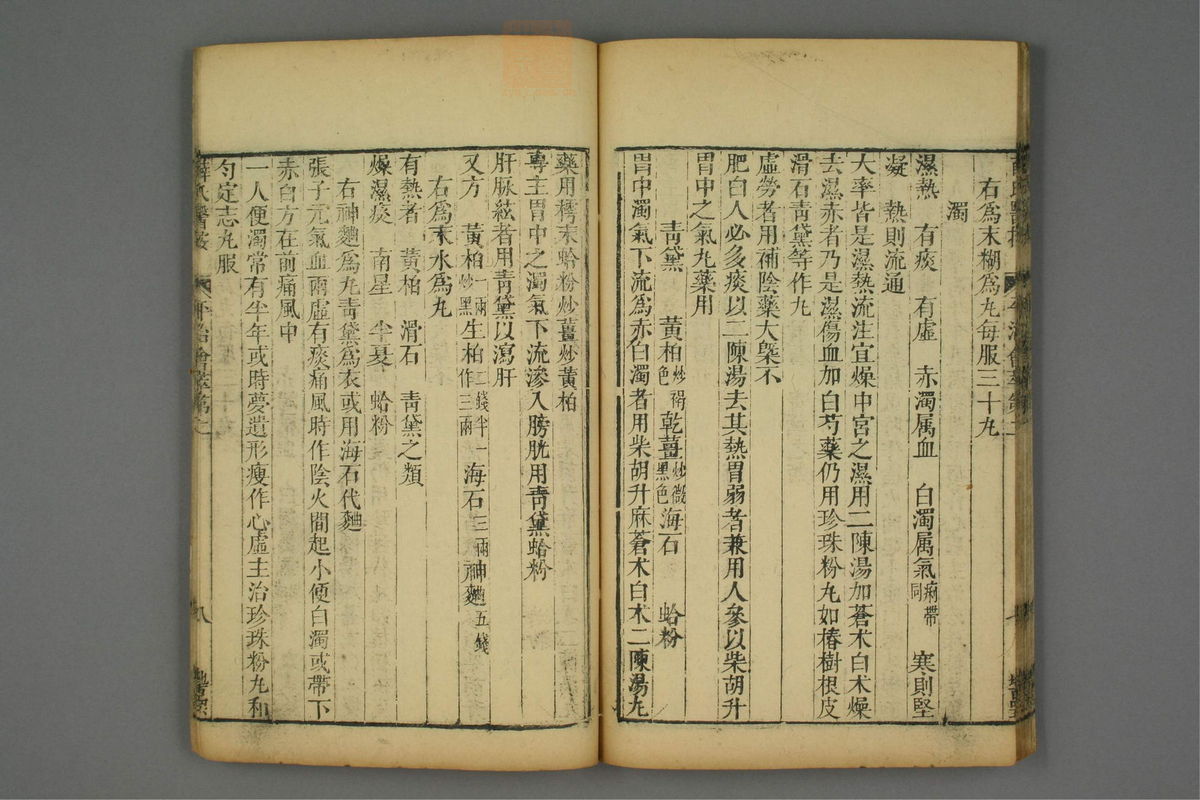 右為末糊為丸每服三十丸
濁
濕熱 有痰 有虛 赤濁属血 白濁属氣痢帶同 寒則堅
凝 熱則流通
大率皆是濕熱流注宜燥中宮之濕用二陳湯加蒼朮白朮燥
去濕赤者乃是濕傷血加白芍藥仍用珍珠粉丸如椿樹根皮
滑石青黛等作丸
虛勞者用補陰藥大槩不
肥白人必多痰以二陳湯去其熱胃弱者兼用人參以柴胡升
胃中之氣丸藥用
青黛 黃柏炒褐色 乾薑炒微黑色 海石 蛤粉
胃中濁氣下流為赤白濁者用柴胡升麻蒼朮白朮二陳湯丸
藥用樗末蛤粉炒薑炒黃柏
專主胃中之濁氣下流滲入膀胱用青黛蛤粉
肝脉絃者用青黛以瀉肝
又方 黃柏一兩炒黑 生柏二錢半一作三兩 海石三兩 神麯五錢
右為末水為丸
有熱者 黃柏 滑石 青黛之類
燥濕痰 南星 半夏 蛤粉
右神麯為丸青黛為衣或用海石代麯
張子元氣血兩虛有痰痛風時作陰火間起小便白濁或帶下
赤白方在前痛風中
一人便濁常有半年或時夢遺形瘦作心虛主治珍珠粉丸和
勻定志丸服